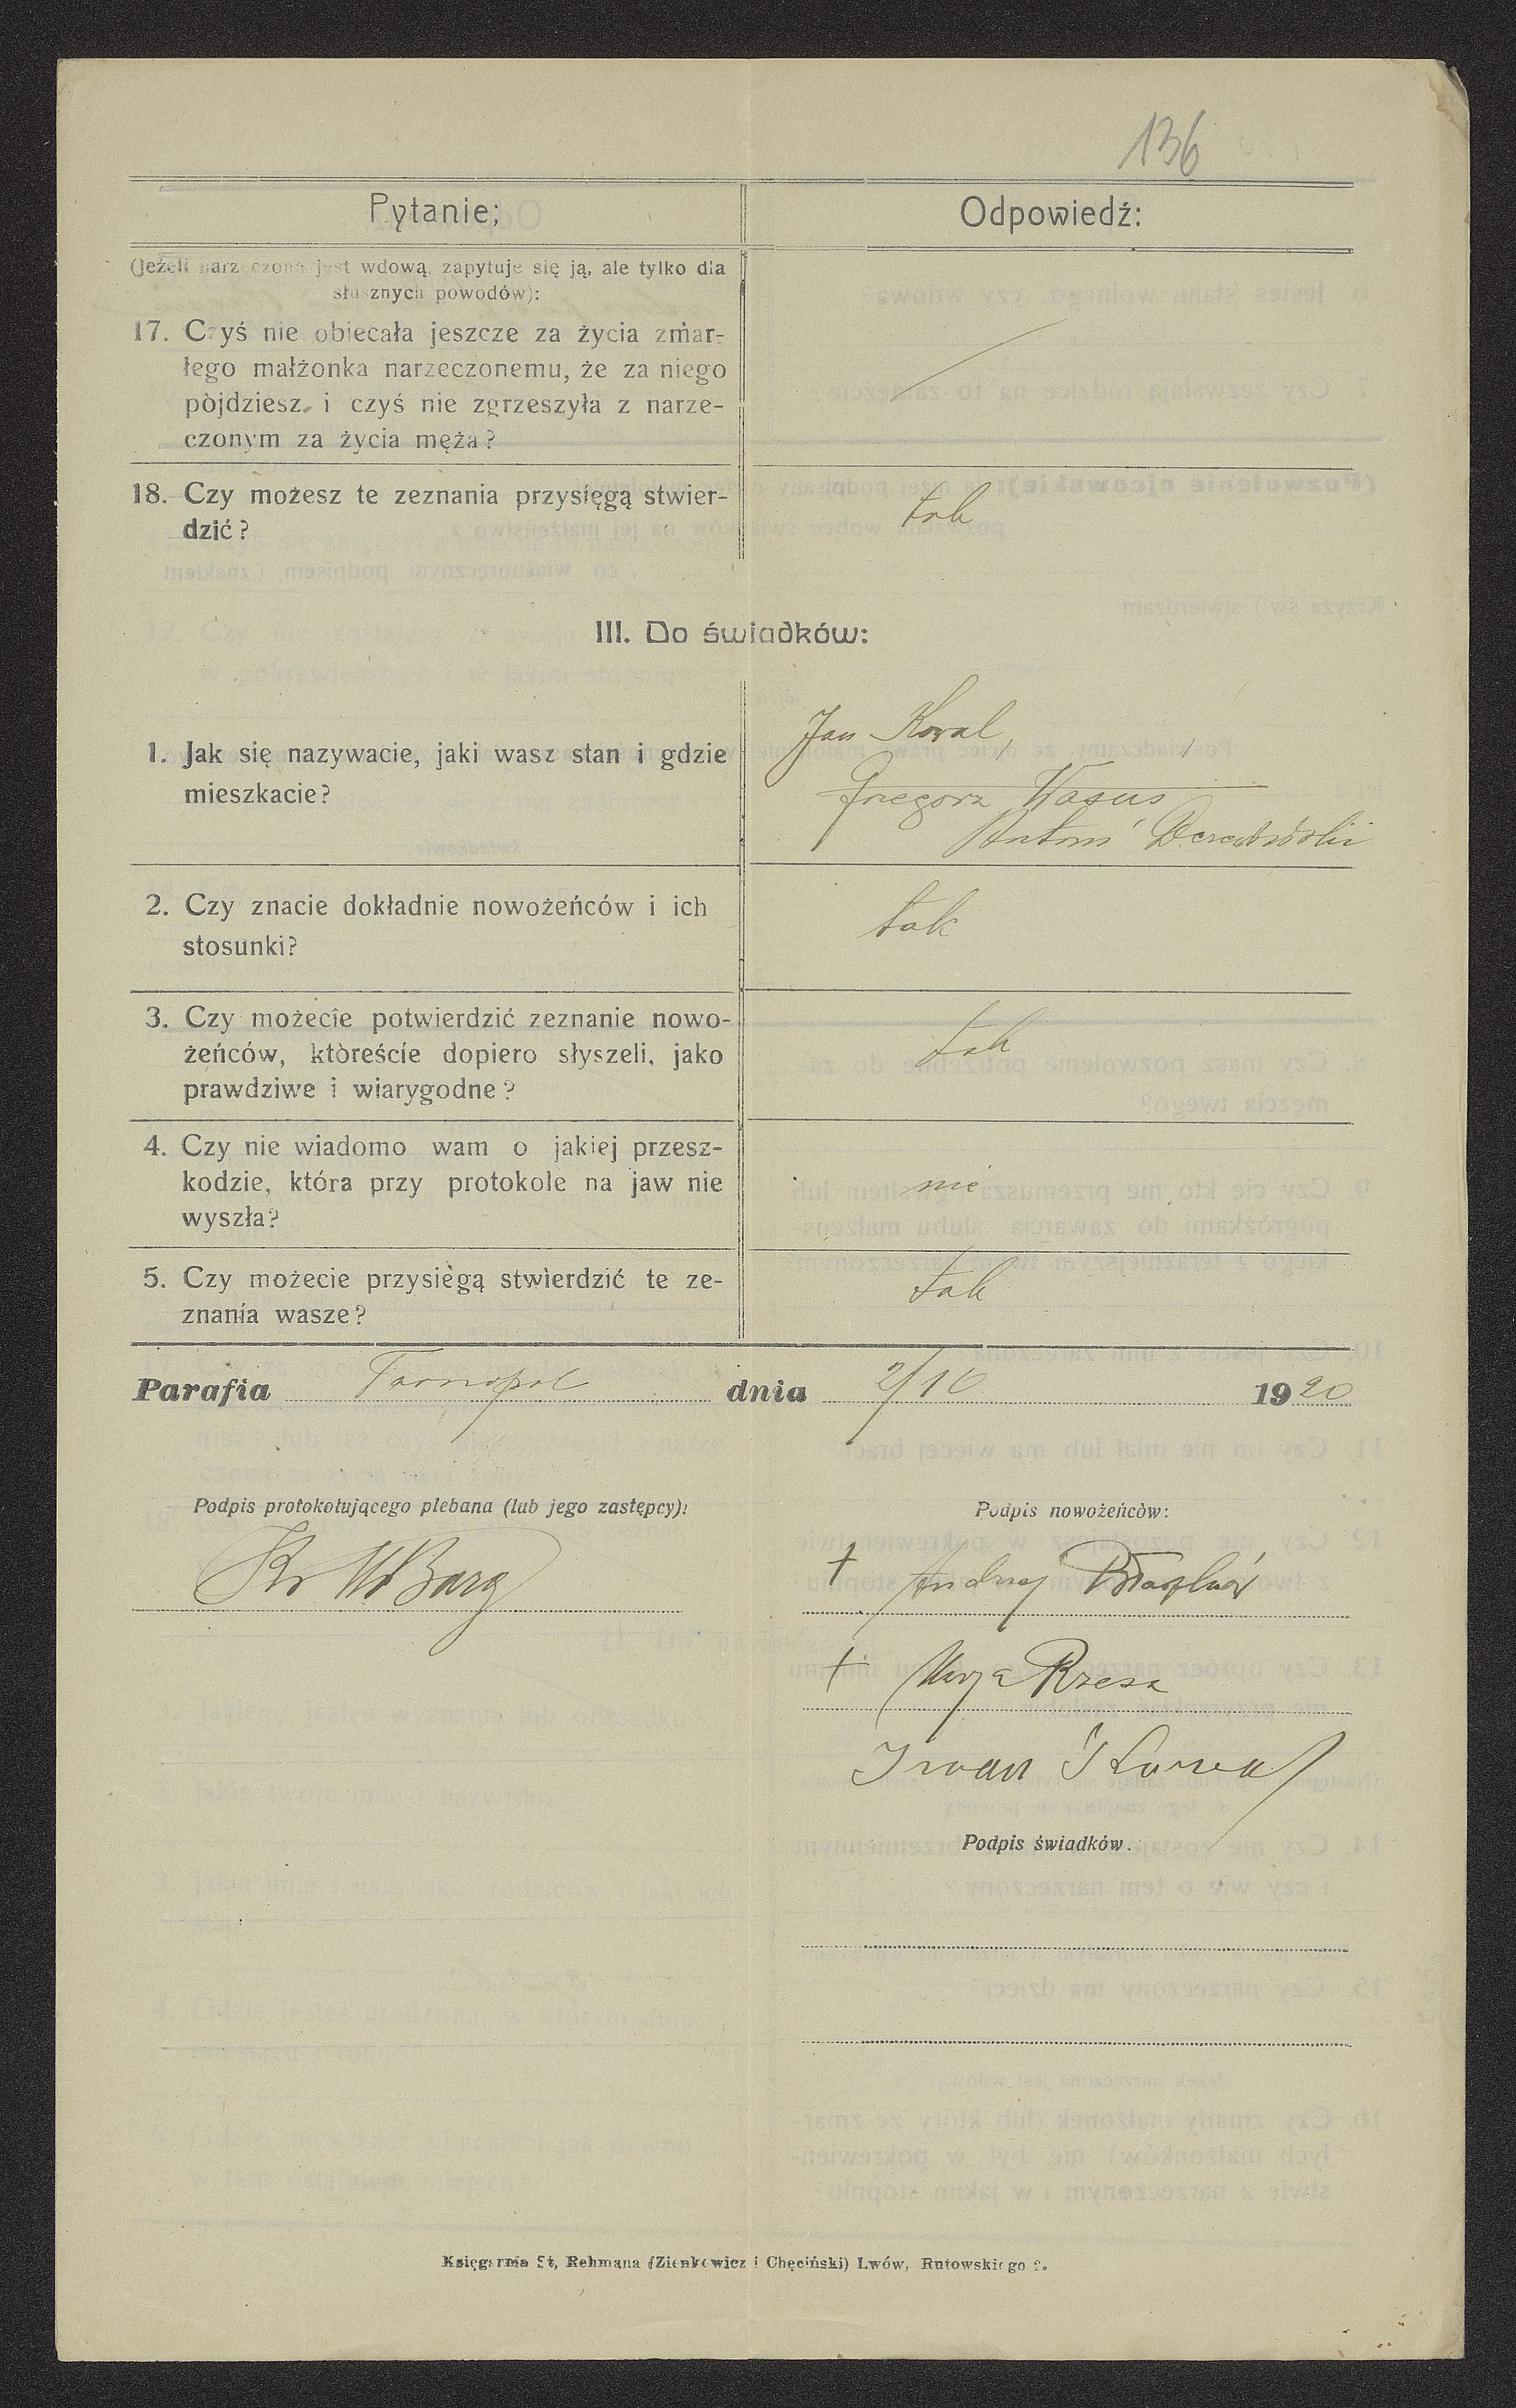 136
Pytanie;
Odpowiedź:
(Jeżeli narzeczona jest wdową, zapytuje się ją, ale tylko dla
słusznych powodów):
17. Czyś nie obiecała jeszcze za życia zmar-
łego małżonka narzeczonemu, że za niego
pòjdziesz, i czyś nie zgrzeszyła z narze-
czonym za życia męża?
18. Czy możesz te zeznania przysięgą stwier-
dzić?
tak
III. Do świadków:
1. Jak się nazywacie, jaki wasz stan i gdzie
mieszkacie?
Jan Kowal,
Grzegorz Wasus
Antoni
2. Czy znacie dokładnie nowożeńców i ich
stosunki?
tak
3. Czy możecie potwierdzić zeznanie nowo-
żeńców, któreście dopiero słyszeli, jako
prawdziwe i wiarygodne?
tak
4. Czy nie wiadomo wam o jakiej przesz-
kodzie, która przy protokole na jaw nie
wyszła?
nie
5. Czy możecie przysięgą stwierdzić te ze-
znania wasze?
tak
Parafia Tarnopol dnia 2/10 1920
Podpis protokołującego plebana (lub jego zastępcy):
Podpis nowożeńców:
† Andrzej
† Marja Rzesa
Iwan
Podpis świadków.
Księgarnia St, Rehmana (Zienkowicz i Chęciński) Lwów, Rutowskiego 9.